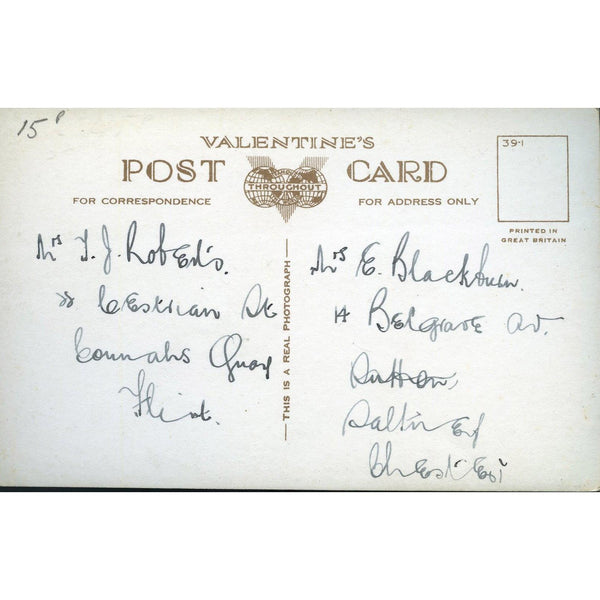 15P
VALENTINE'S
POST CARD
THROUGHOUT
FOR CORRESPONDENCE
FOR ADDRESS ONLY
39-1
PRINTED IN
GREAT BRITAIN
THIS IS A REAL PHOTOGRAPH
Mrs T. J. Roberts.
Cestrian St
Connahs Quay
Flint.
Mrs E. Blackburn.
14 Belgrave Av.
Saltney
Chester